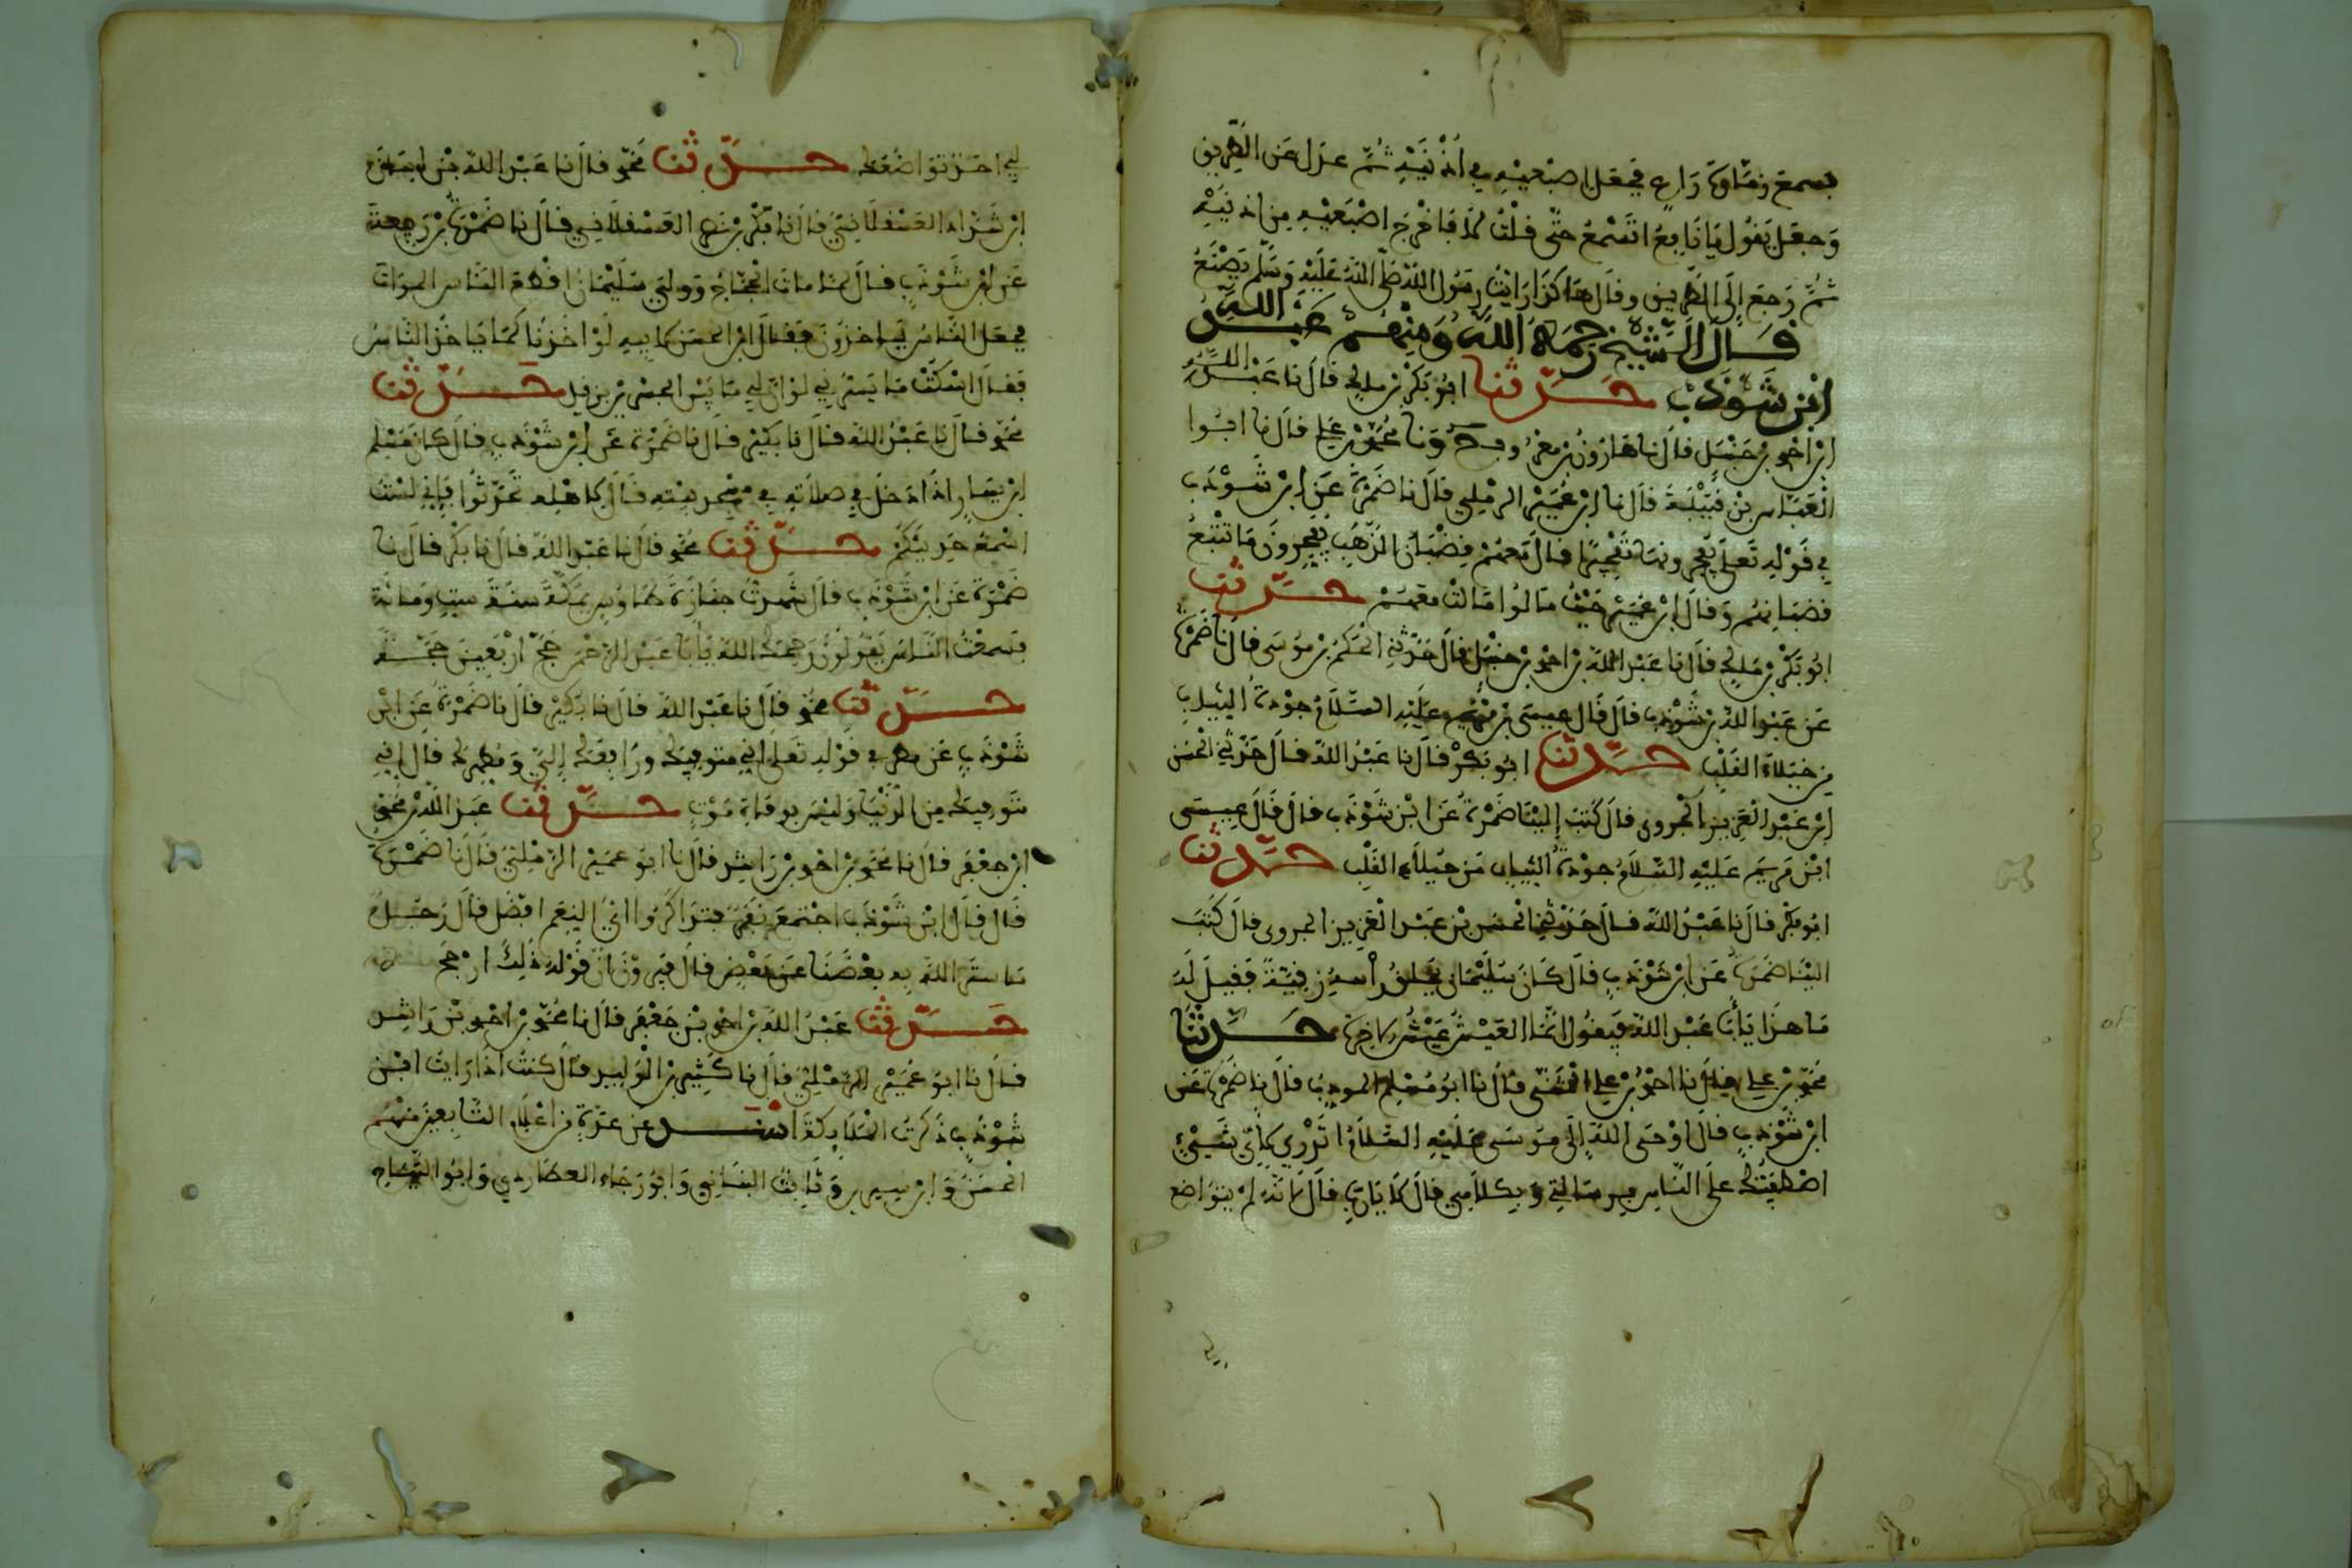 فسمع زمارة راع فجعل اصبعيه في أذنيه ثم عدل عن الطريق
وجعل يقول يا نافع اتسمع حتى قلت لا فاخرج اصبعيه من اذنيه
ثم رجع إلى الطريق وقال هاكذا رايت رسول الله صلى الله عليه وسلم يصنع
قال الشيخ رحمه الله ومنهم عبد الله
ابن شوذب حدثنا ابو بكر بن ملك قال نا عبد الله
ابن احمد بن حنبل قال نا هارون بن معروف ح ونا محمد بن علي قال نا ابوا
العباس بن قتيبة قال نا ابن عمير الرملي قال نا ضمرة عن ابن شوذب
في قوله تعلى يفجرونها تفجيرا قال معهم قضبان الذهب يفجرون ما تتبع
قضبانهم وقال ابن عمير حيث مالوا مالت معهم حدثنا
ابو بكر بن ملك قال نا عبد الله بن احمد بن حنبل قال حدثني الحكم بن موسى قال نا ضمرة
عن عبد الله بن شوذب قال قال عيسى بن مريم عليه السلام جودة الثياب
من خيلاء القلب حدثنا ابو بكر قال نا عبد الله قال حدثني الحسن
ابن عبد العزيز الجروى قال كتب إلينا ضمرة عن ابن شوذب قال قال عيسى
ابن مريم عليه السلام جودة الثياب من خيلاء القلب حدثنا
ابو بكر قال نا عبد الله قال حدثني الحسن بن عبد العزيز الجروى قال كتب
الينا ضمرة عن ابن شوذب قال كان سليمان يحلق راسه فقيل له
ما هذا يا أبا عبد الله فيقول انما العيش عيش الاخرة حدثنا
محمد بن علي قال نا احمد بن علي المثنى قال نا ابو مسلم المودب قال نا ضمرة عن
ابن شوذب قال اوحى الله الى موسى عليه السلام اتدري لأي شيئ
اصطفيتك على الناس برسالتي وبكلامي قال لا يارب قال لانه لم يتواضع
لي احد تواضعك حدثنا محمد قال نا عبد الله بن
ابن شداد العسقلاني قال نا بكر بن العسقلاني قال نا ضمرة بن ربيعة
عن ابن شوذب قال لما مات الحجاج وولي سليمان اقطع الناس الموات
فجعل الناس ياخذون فقال ابن الحسن لابيه لو اخذنا كما ياخذ الناس
فقال اسكت ما يسرني لو ان لي ما بين الجسرين بزبيل حدثنا
محمد قال نا عبد الله قال نا بكير قال نا ضمرة عن ابن شوذب قال كان مسلم
ابن يسار اذا دخل في صلاته في مسجد بيته قال لاهله تحدثوا فإني لست
اسمع حديثكم حدثنا محمد قال نا عبد الله قال نا بكر قال نا
ضمرة عن ابن شوذب قال شهدت جنازة طاوس بمكة سنة ست ومائة
فسمعت الناس يقولون رحمك الله يا أبا عبد الرحمن حج اربعين حجة
حدثنا محمد قال نا عبد الله قال نا بكير قال نا ضمرة عن ابن
شوذب عن مطر في قوله تعلى اني متوفيك ورافعك إلي ومطهرك قال إني
متوفيك من الدنيا وليس بوفاة موت حدثنا عبد الله بن محمد
ابن جعفر قال نا محمد بن احمد بن راشد قال نا ابو عمير الرملي قال نا ضمرة
قال قال ابن شوذب اجتمع نفر فتذاكروا اي النعم افضل قال رجل
ما ستر الله به بعضنا عن بعض قال فيرون ان قوله ذلك ارجح
حدثنا عبد الله بن احمد بن جعفر قال نا محمد بن احمد بن راشد
قال نا ابو عمير الرملي قال نا كثير بن الوليد قال كنت اذا رايت ابن
شوذب ذكرت الملائكة اسند عن عدة من اعلام التابعين منهم
الحسن وابن سيرين وثابت البناني وابو رجاء العطاردي وابو التياح